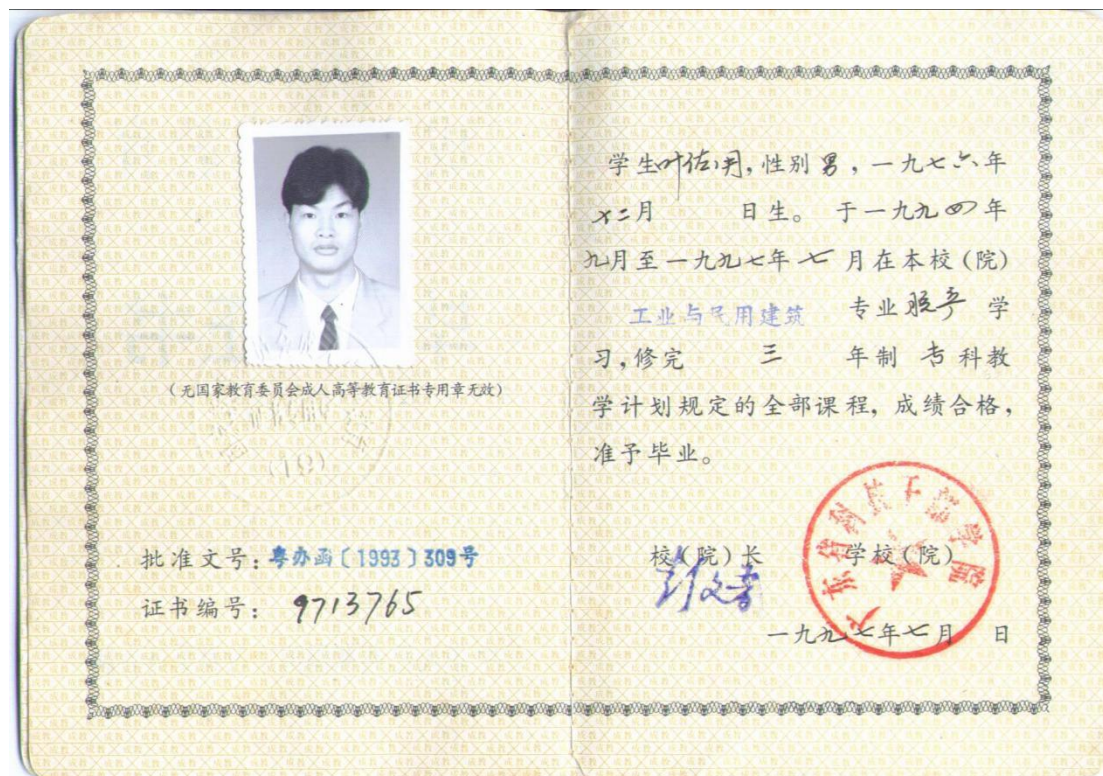 (无国家教育委员会成人高等教育证书专用章无效)
批准文号:粤办函〔1993〕309号
证书编号: 9713765
学生叶佐,性别男,一九七六年
十二月 日生。 于一九九四年
九月至一九九七年七月在本校(院)
工业与民用建筑 专业脱产学
习,修完 三 年制 专科教
学计划规定的全部课程, 成绩合格,
准予毕业。
校(院)长 学校(院)
一九九七年七月 日